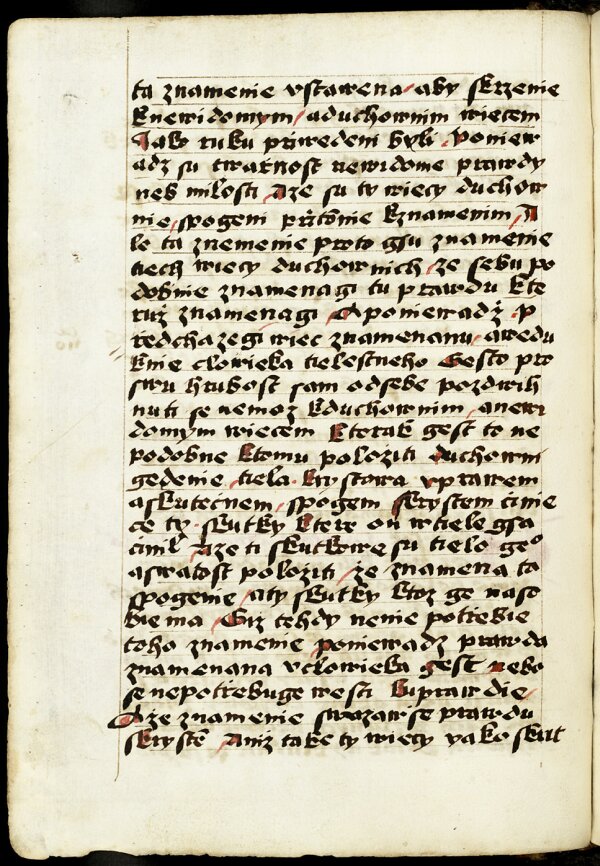 ta znamenie vstawena aby skrzenie
knewidomym aduchownim wiecem
Jako ruku prziwedeni byli Poniew
adz su twarnost newidome prawdy
neb milosti Aze su ty wiecy duchow
nie spogeni przitomnie kznamenim A
le ta znemenie proto gsu znamenie
tiech wiecy duchownich ze sebu po
dobnie znamenagi tu prawdu kte
ruz znamenagi A poniewadz p
redchazegi wiec znamenanu awedu
knie clowieka tielestneho Gesto pro
swu hrubost sam odsebe pozdwih
nuti se nemoz kduchownim anewi
domym wiecem kterak gest to ne
podobne ktomu poloziti duchowni
gedenie tiela krystowa vprawem
askutecnem spogem skrystem cinie
ce ty skutky ktere on wtiele gsa
cinil Aze ti skutkowe su tielo geo
aswatost poloziti ze znamena to
spogenie aty skutky ktoz ge naso
bie ma Giz tehdy nenie potrebie
toho znamenie poniewadz prawda
znamenana vclowieka gest nebo
se nepotrebuge westi kuprawdie
A ze znamenie swazawse prawdu
skryste Aniz take ty wiecy yako skut